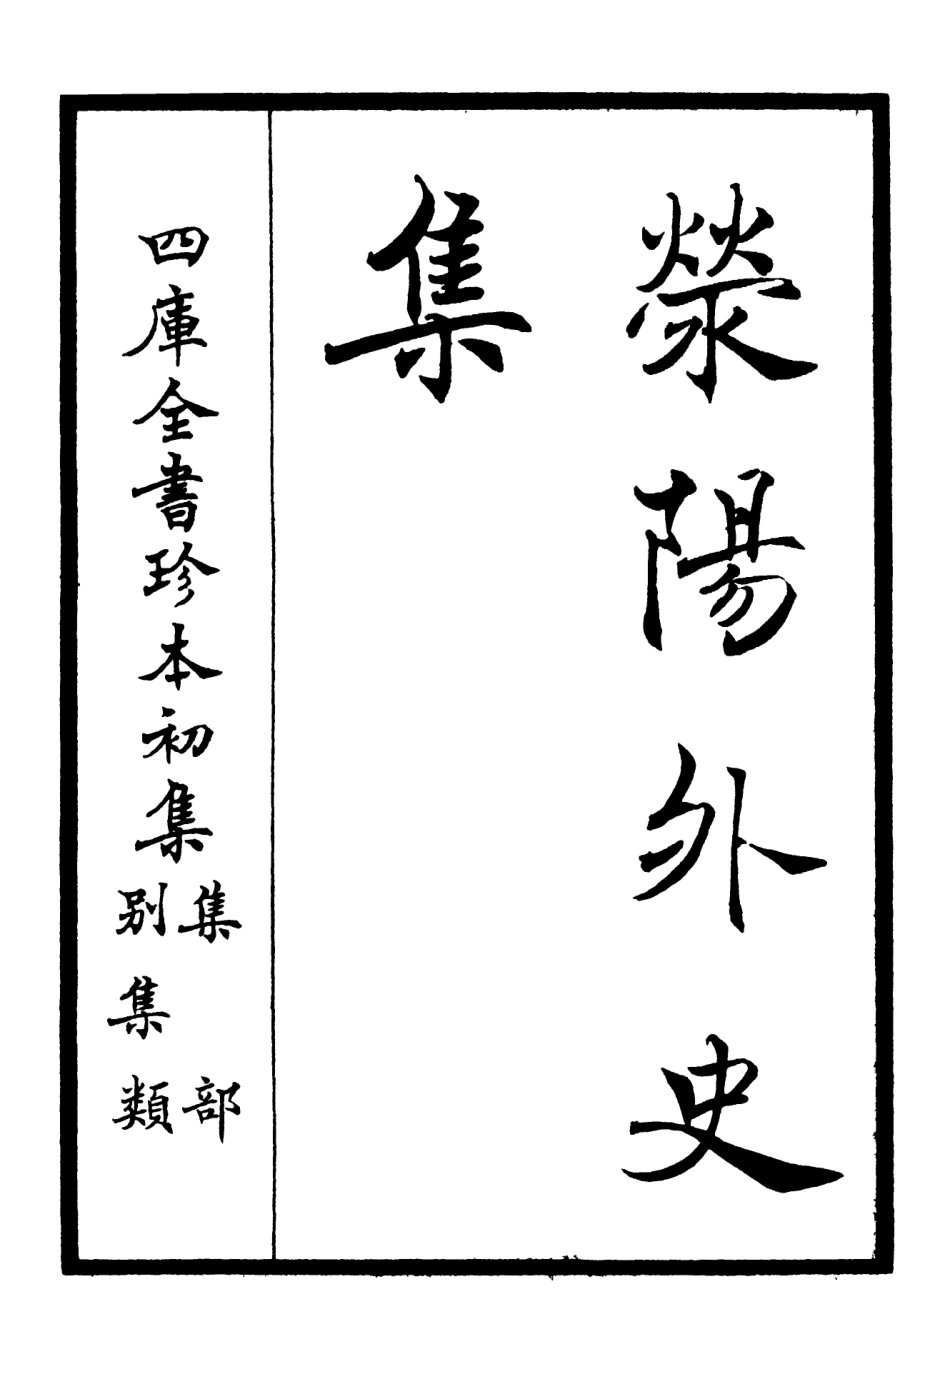 滎陽外史
集
四庫全書珍本初集
集部
別集類